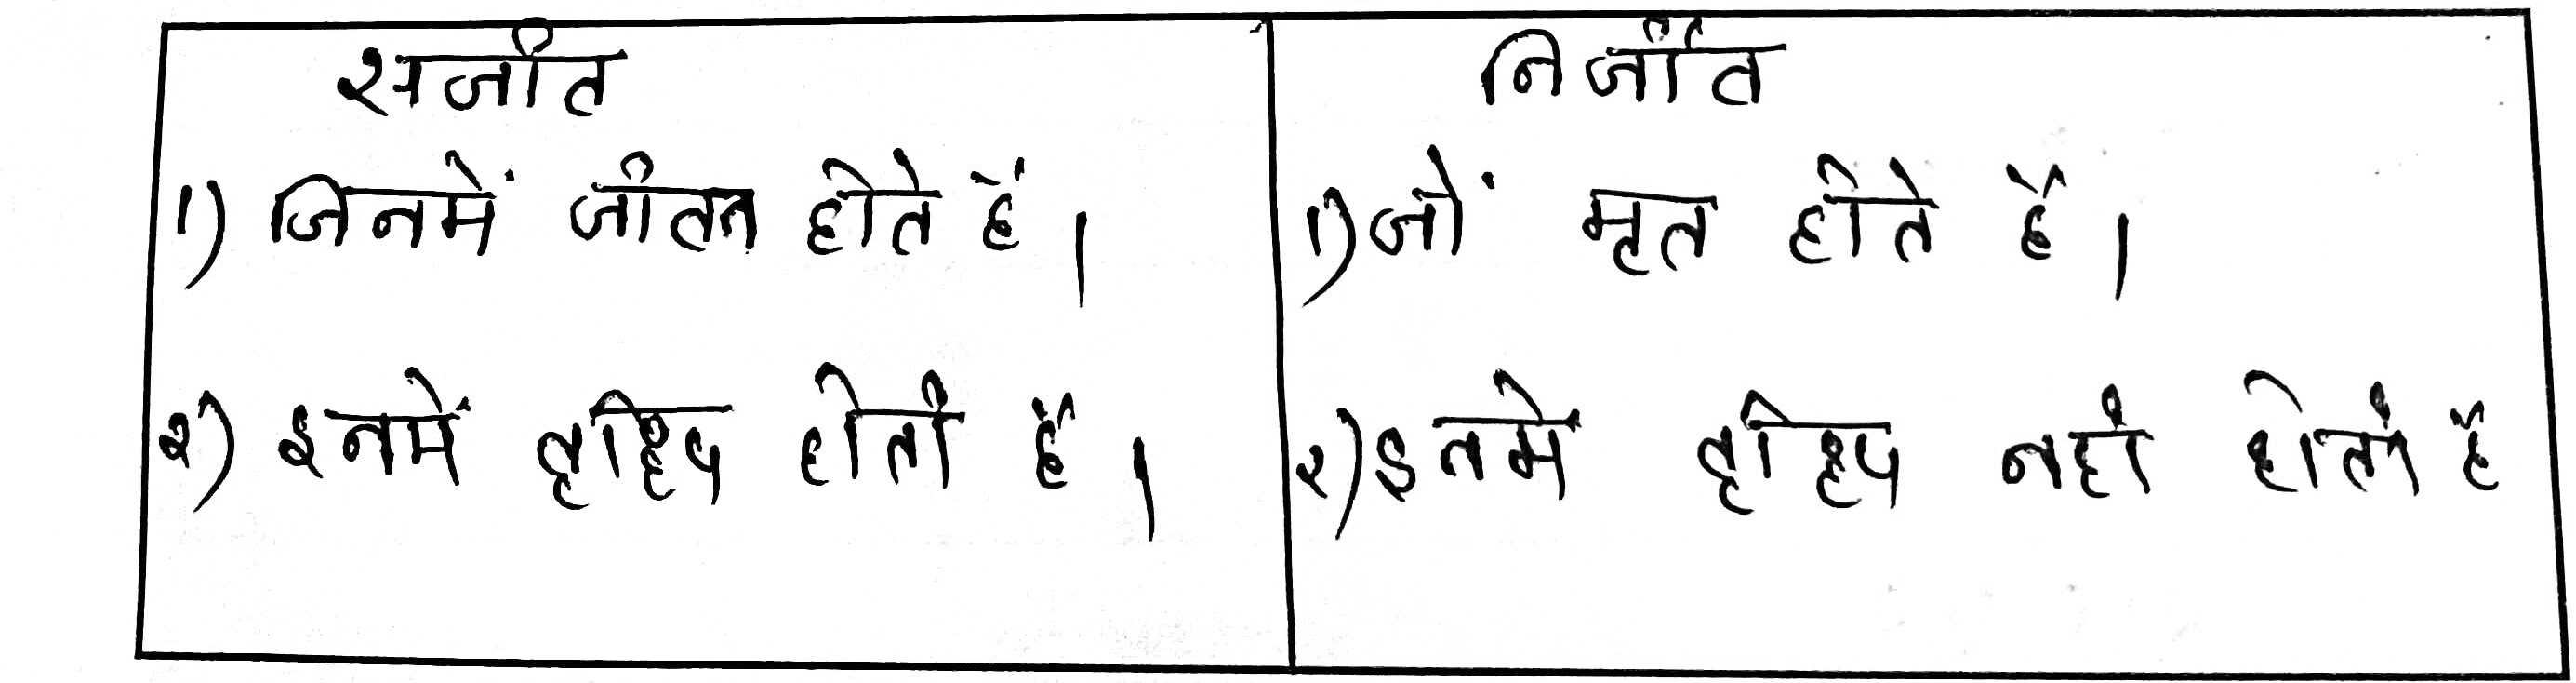 सजीव
निर्जीव
1) जिनमें जीवन होते हैं।
1) जों मृत होते हैं।
२) इनमें वृद्धि होती हैं।
२) इनमें वृद्धि नहीं होती हैं